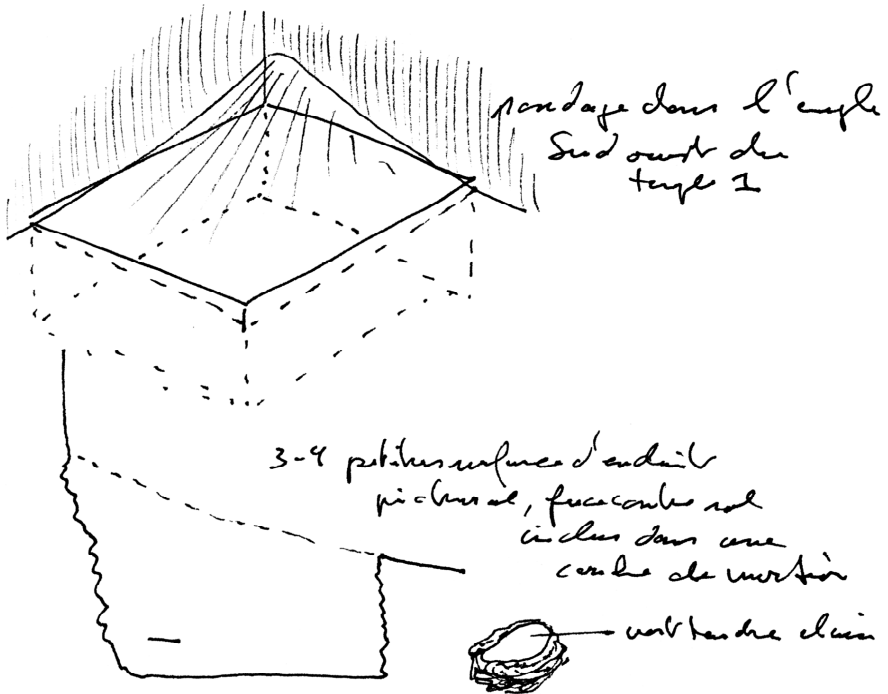 sondage dans l'angle
Sud ouest du
temple 1
3-4 petites surfaces d'enduit
pictural, face contre sol
inclus dans une
couche de mortier
vert tendre clair